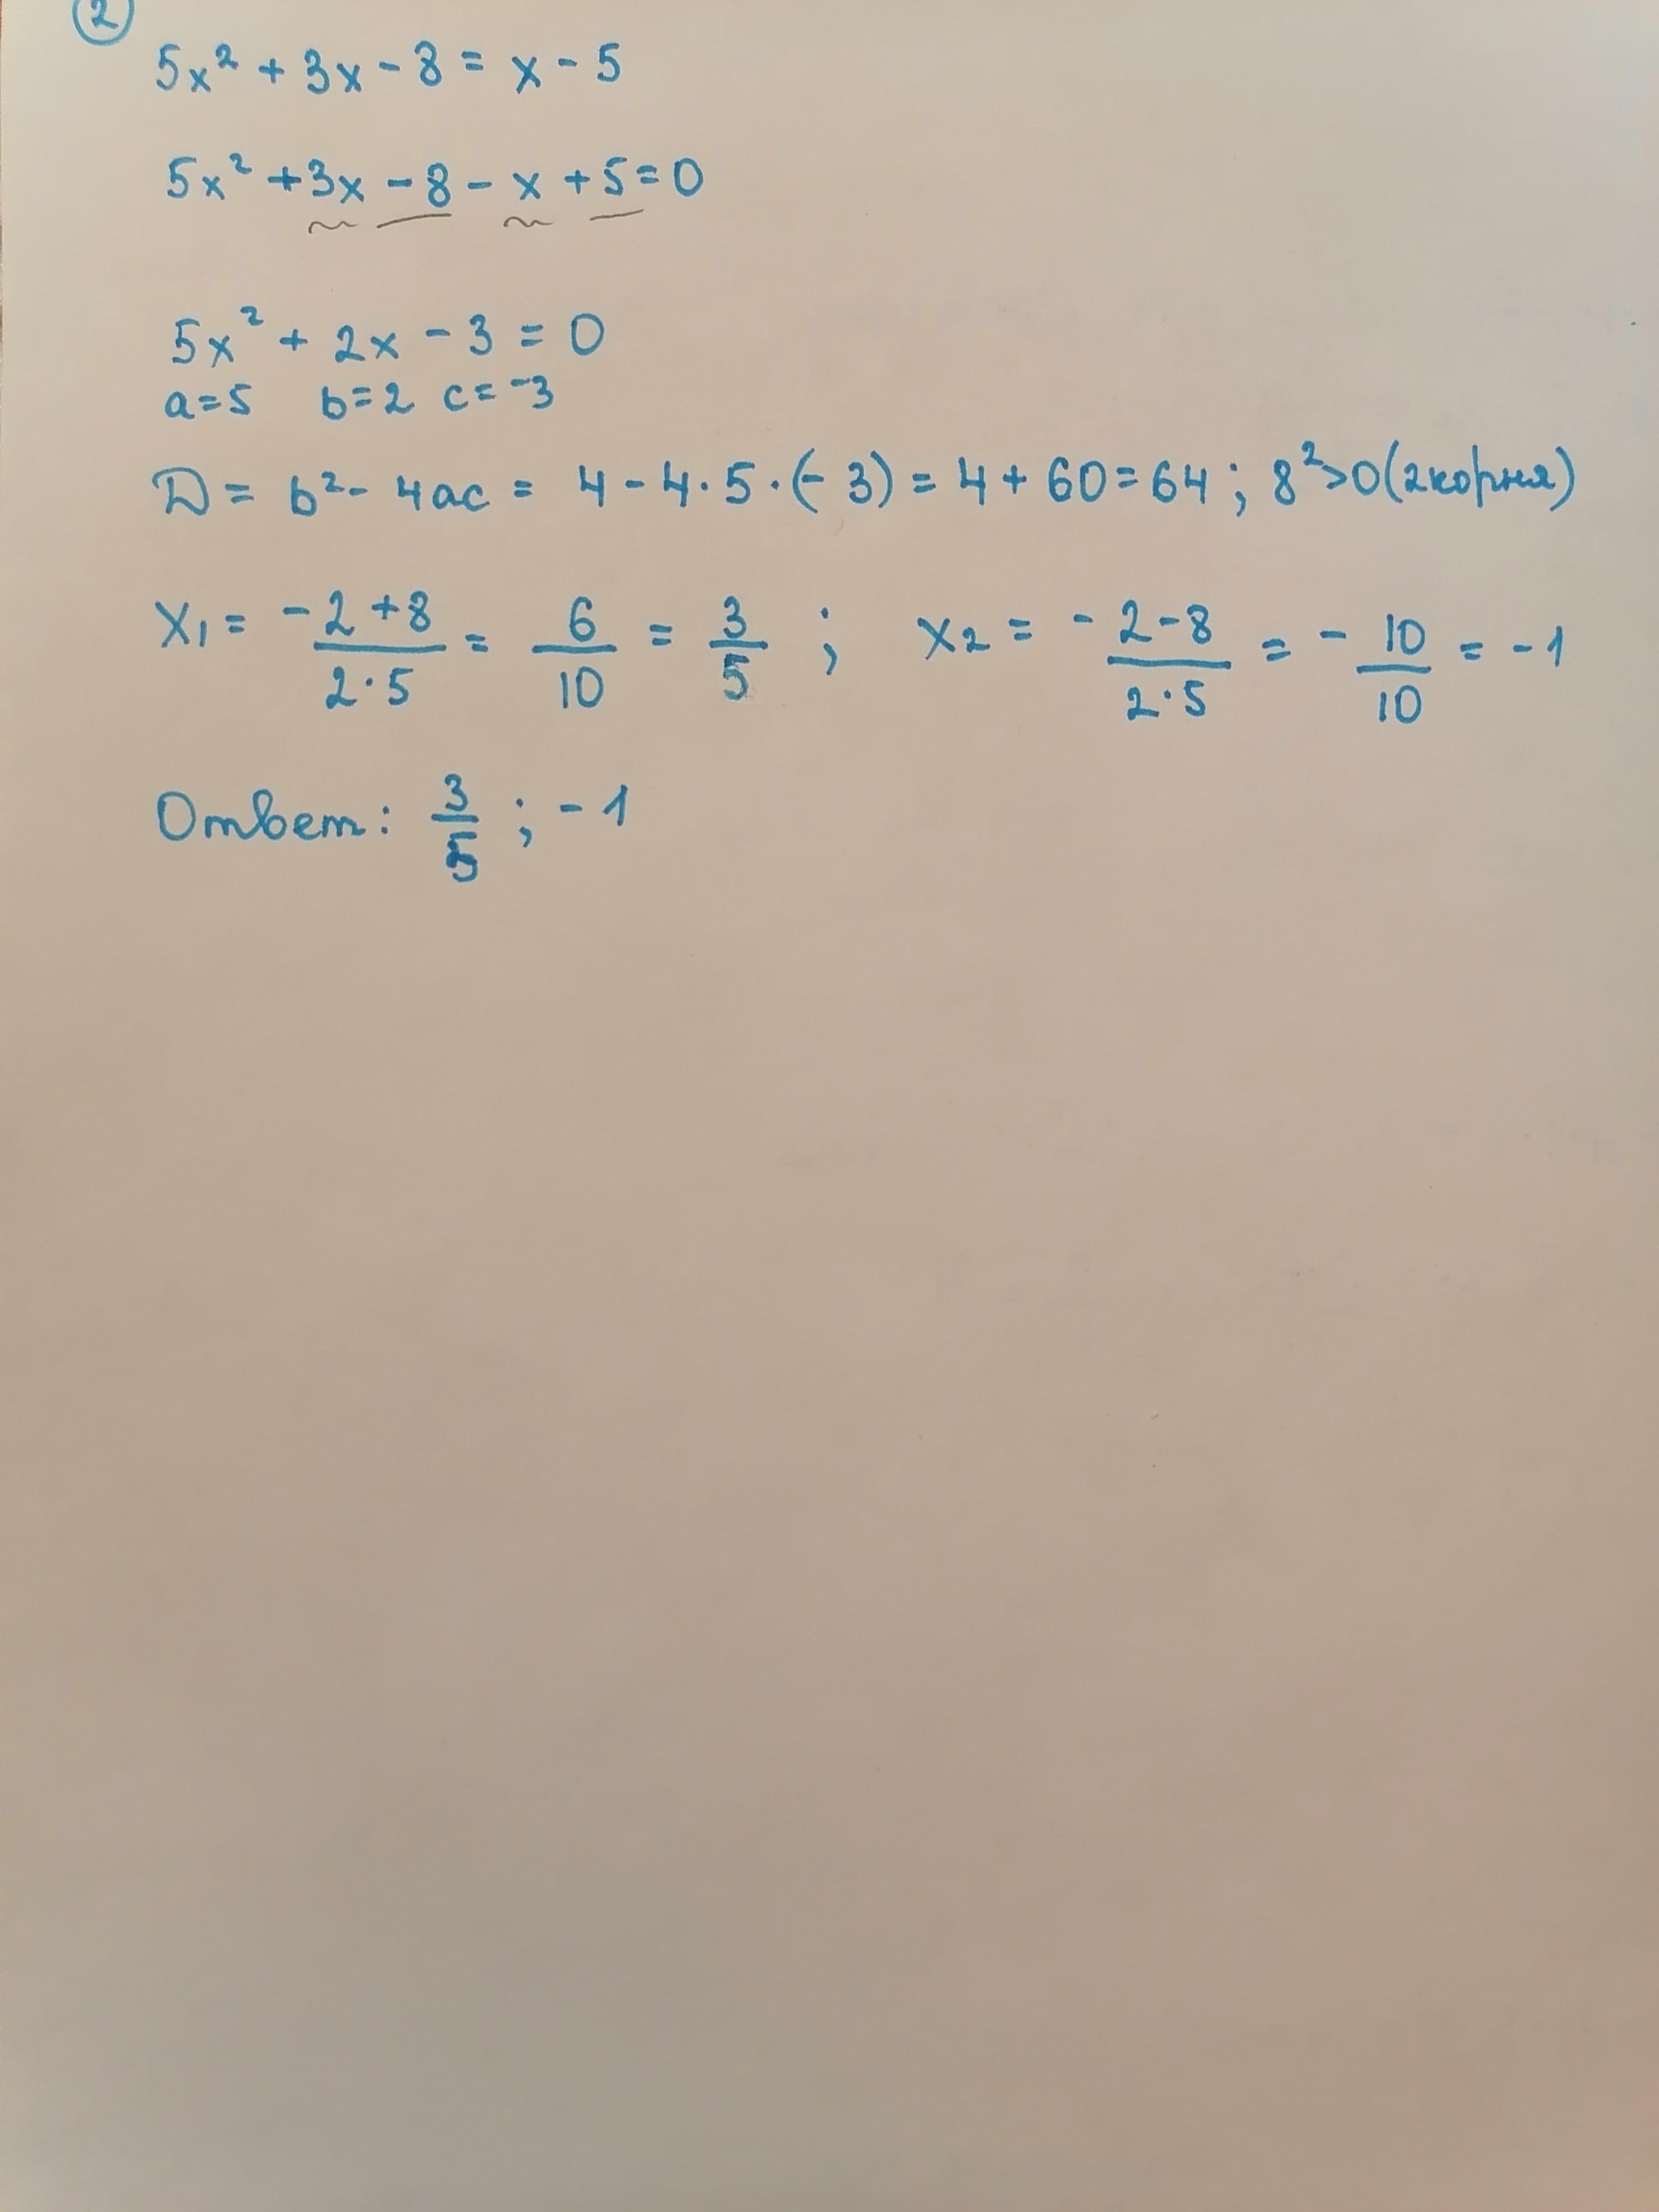 2
5x² + 3x - 8 = x - 5
5x² + 3x - 8 - x + 5 = 0
5x² + 2x - 3 = 0
a=5 b=2 c=-3
D = b² - 4ac = 4 - 4·5·(-3) = 4 + 60 = 64; 8²>0 (2корня)
x₁ = (-2+8)/(2·5) = 6/10 = 3/5 ; x₂ = (-2-8)/(2·5) = -10/10 = -1
Ответ: 3/5 ; -1